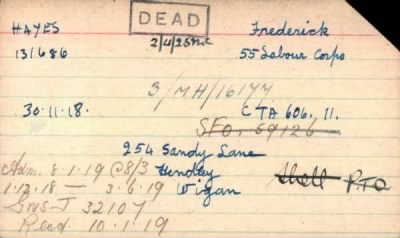 DEAD
HAYES Frederick
2/4/25
131686 55 Labour Corps
3/MH/16177
30.11.18. CTA 606. 11.
SFO. 69126
254 Sandy Lane
Adm. 8.1.19 @8/3 Hindley Shell P.T.O
1.12.18 — 3.6.19 Wigan
GWS-T 32107
Recd. 10.1.19